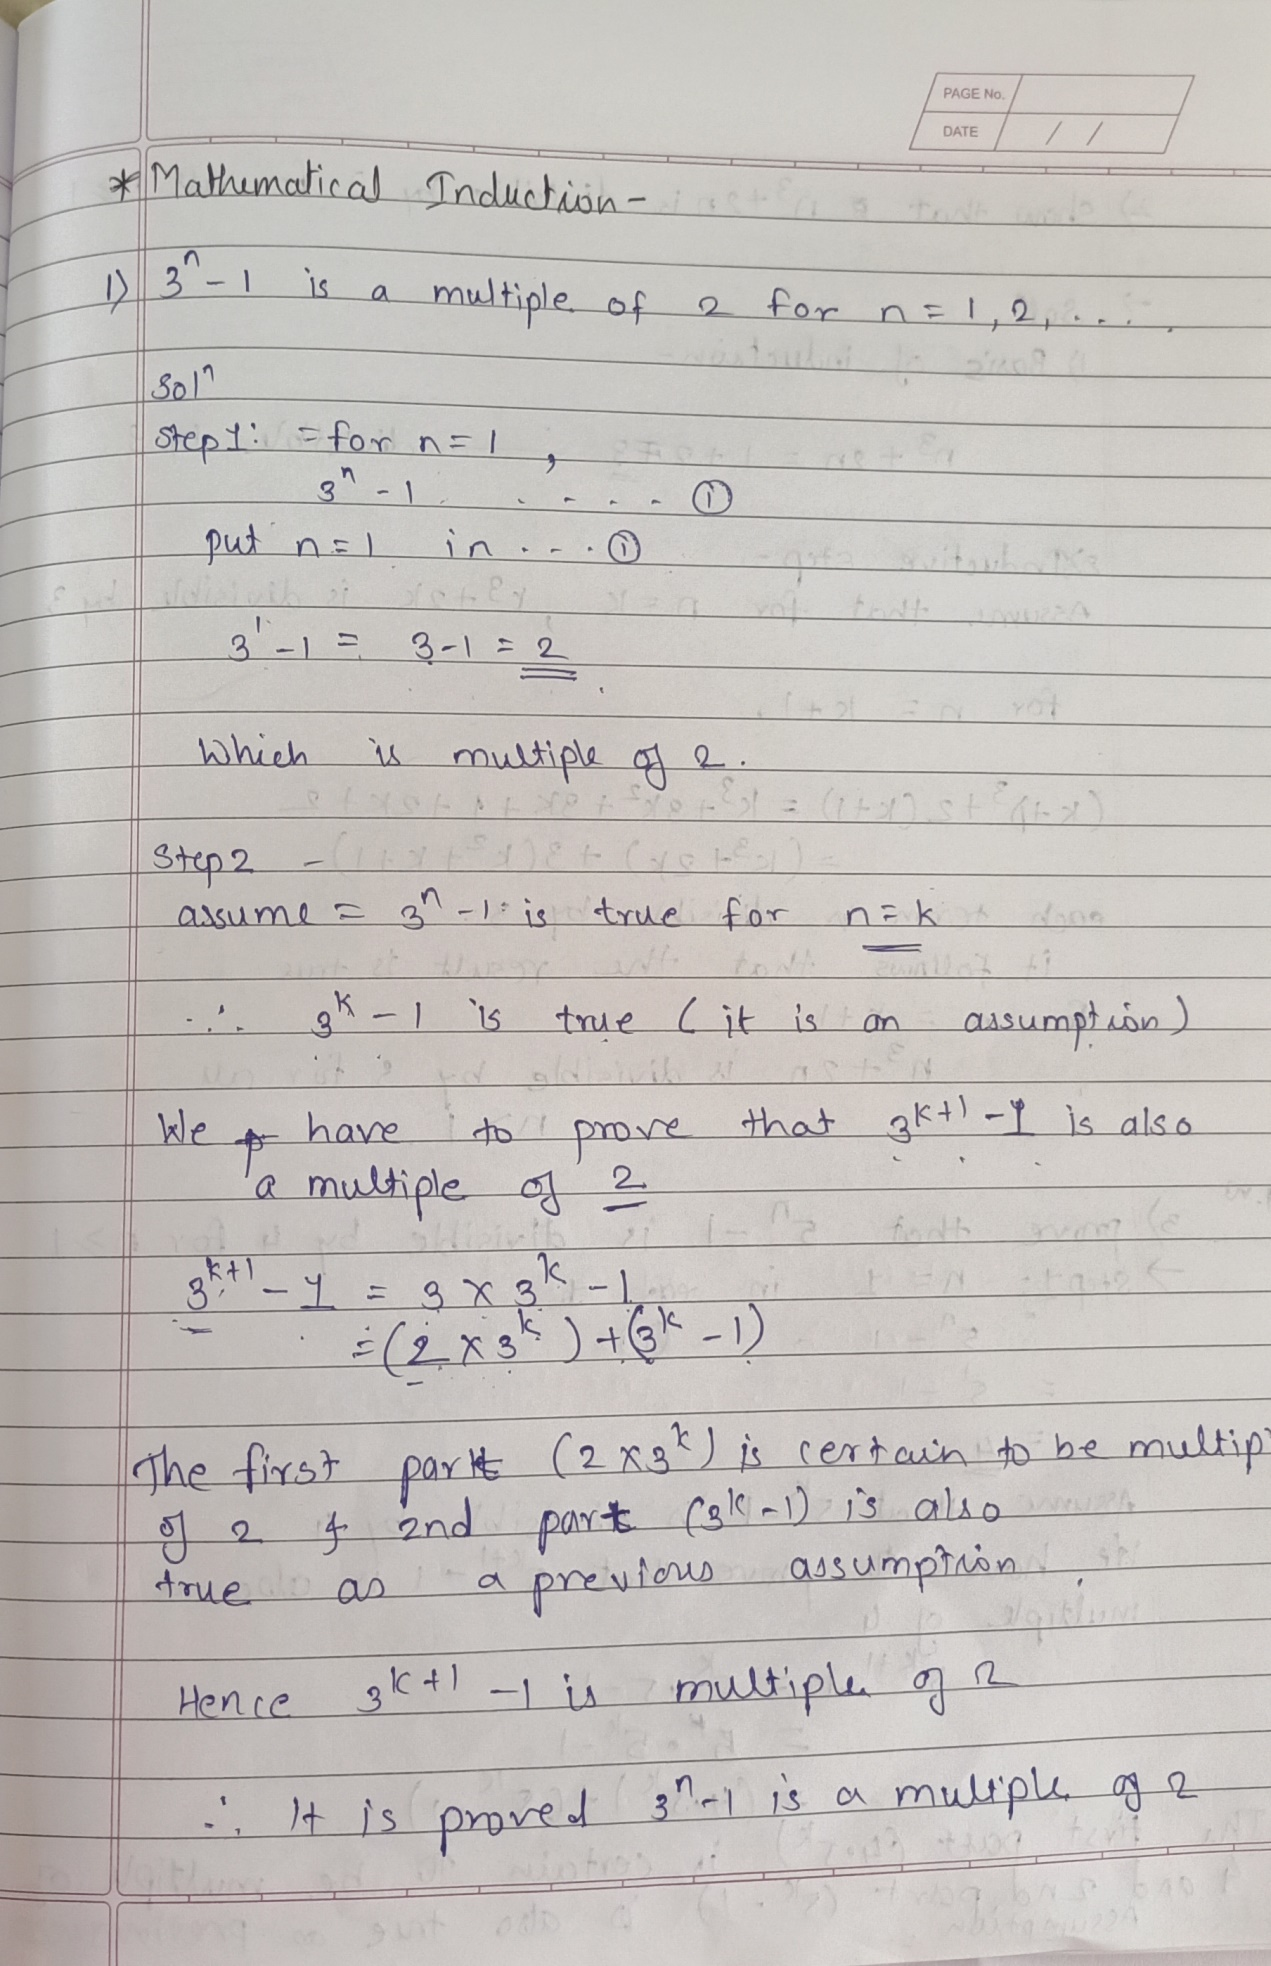 PAGE No.
DATE / /
* Mathematical Induction -
1) 3ⁿ - 1 is a multiple of 2 for n = 1, 2, ....
Solⁿ
Step 1: = for n = 1 ,
3ⁿ - 1 . . . . . ①
put n = 1 in . - . . ①
3¹ - 1 = 3 - 1 = 2
Which is multiple of 2 .
Step 2 -
assume = 3ⁿ - 1 is true for n = k
∴ 3ᵏ - 1 is true ( it is an assumption )
We have to prove that 3ᵏ⁺¹ - 1 is also
a multiple of 2
3ᵏ⁺¹ - 1 = 3 × 3ᵏ - 1
= ( 2 × 3ᵏ ) + (3ᵏ - 1)
The first part (2 × 3ᵏ) is certain to be multip
of 2 & 2nd part (3ᵏ - 1) is also
true as a previous assumption .
Hence 3ᵏ⁺¹ - 1 is multiple of 2
∴ It is proved 3ⁿ - 1 is a multiple of 2